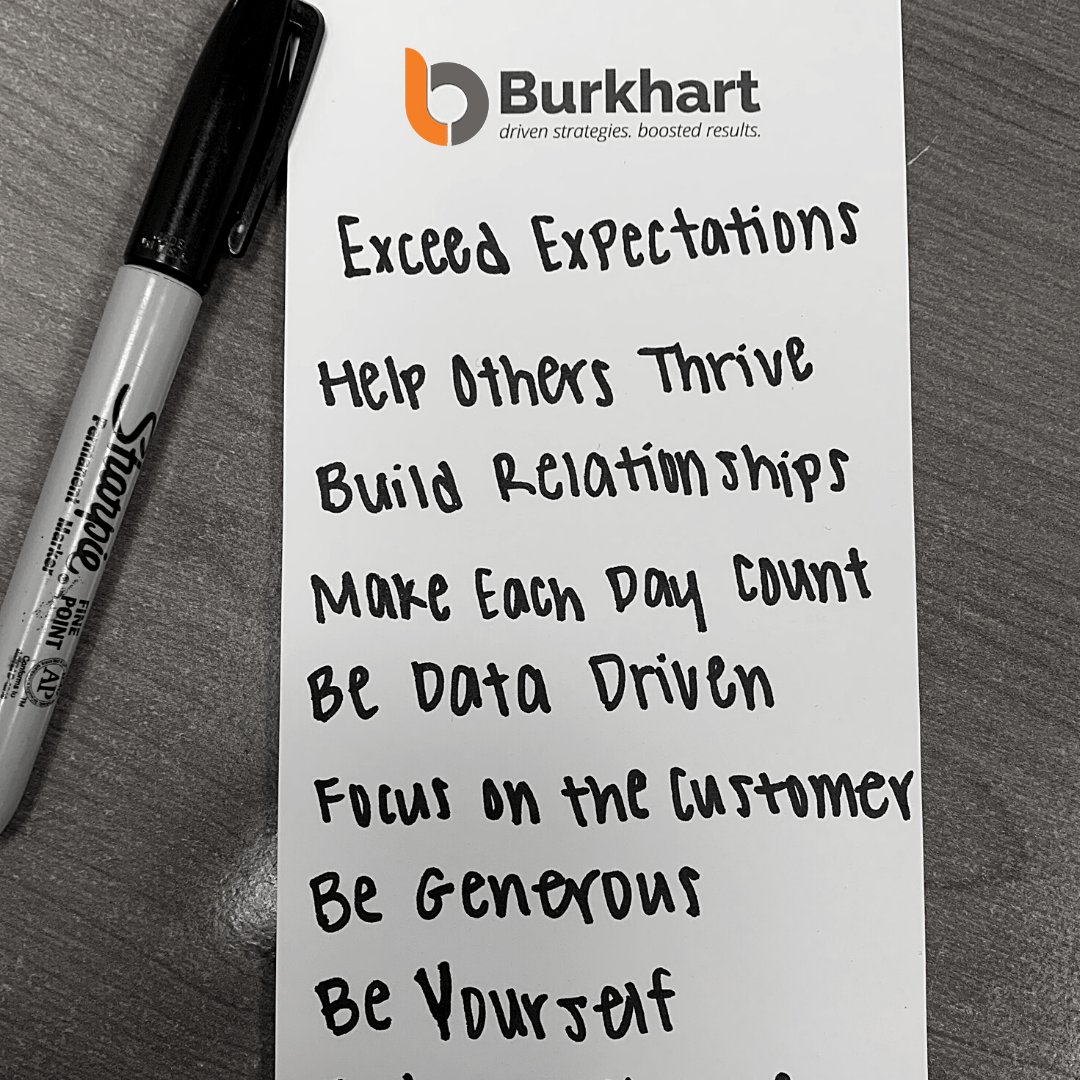 Burkhart
driven strategies. boosted results.
Exceed Expectations
Help Others Thrive
Build Relationships
Make Each Day Count
Be Data Driven
Focus on the Customer
Be Generous
Be Yourself
Sharpie
Permanent Marker
FINE
POINT
AP